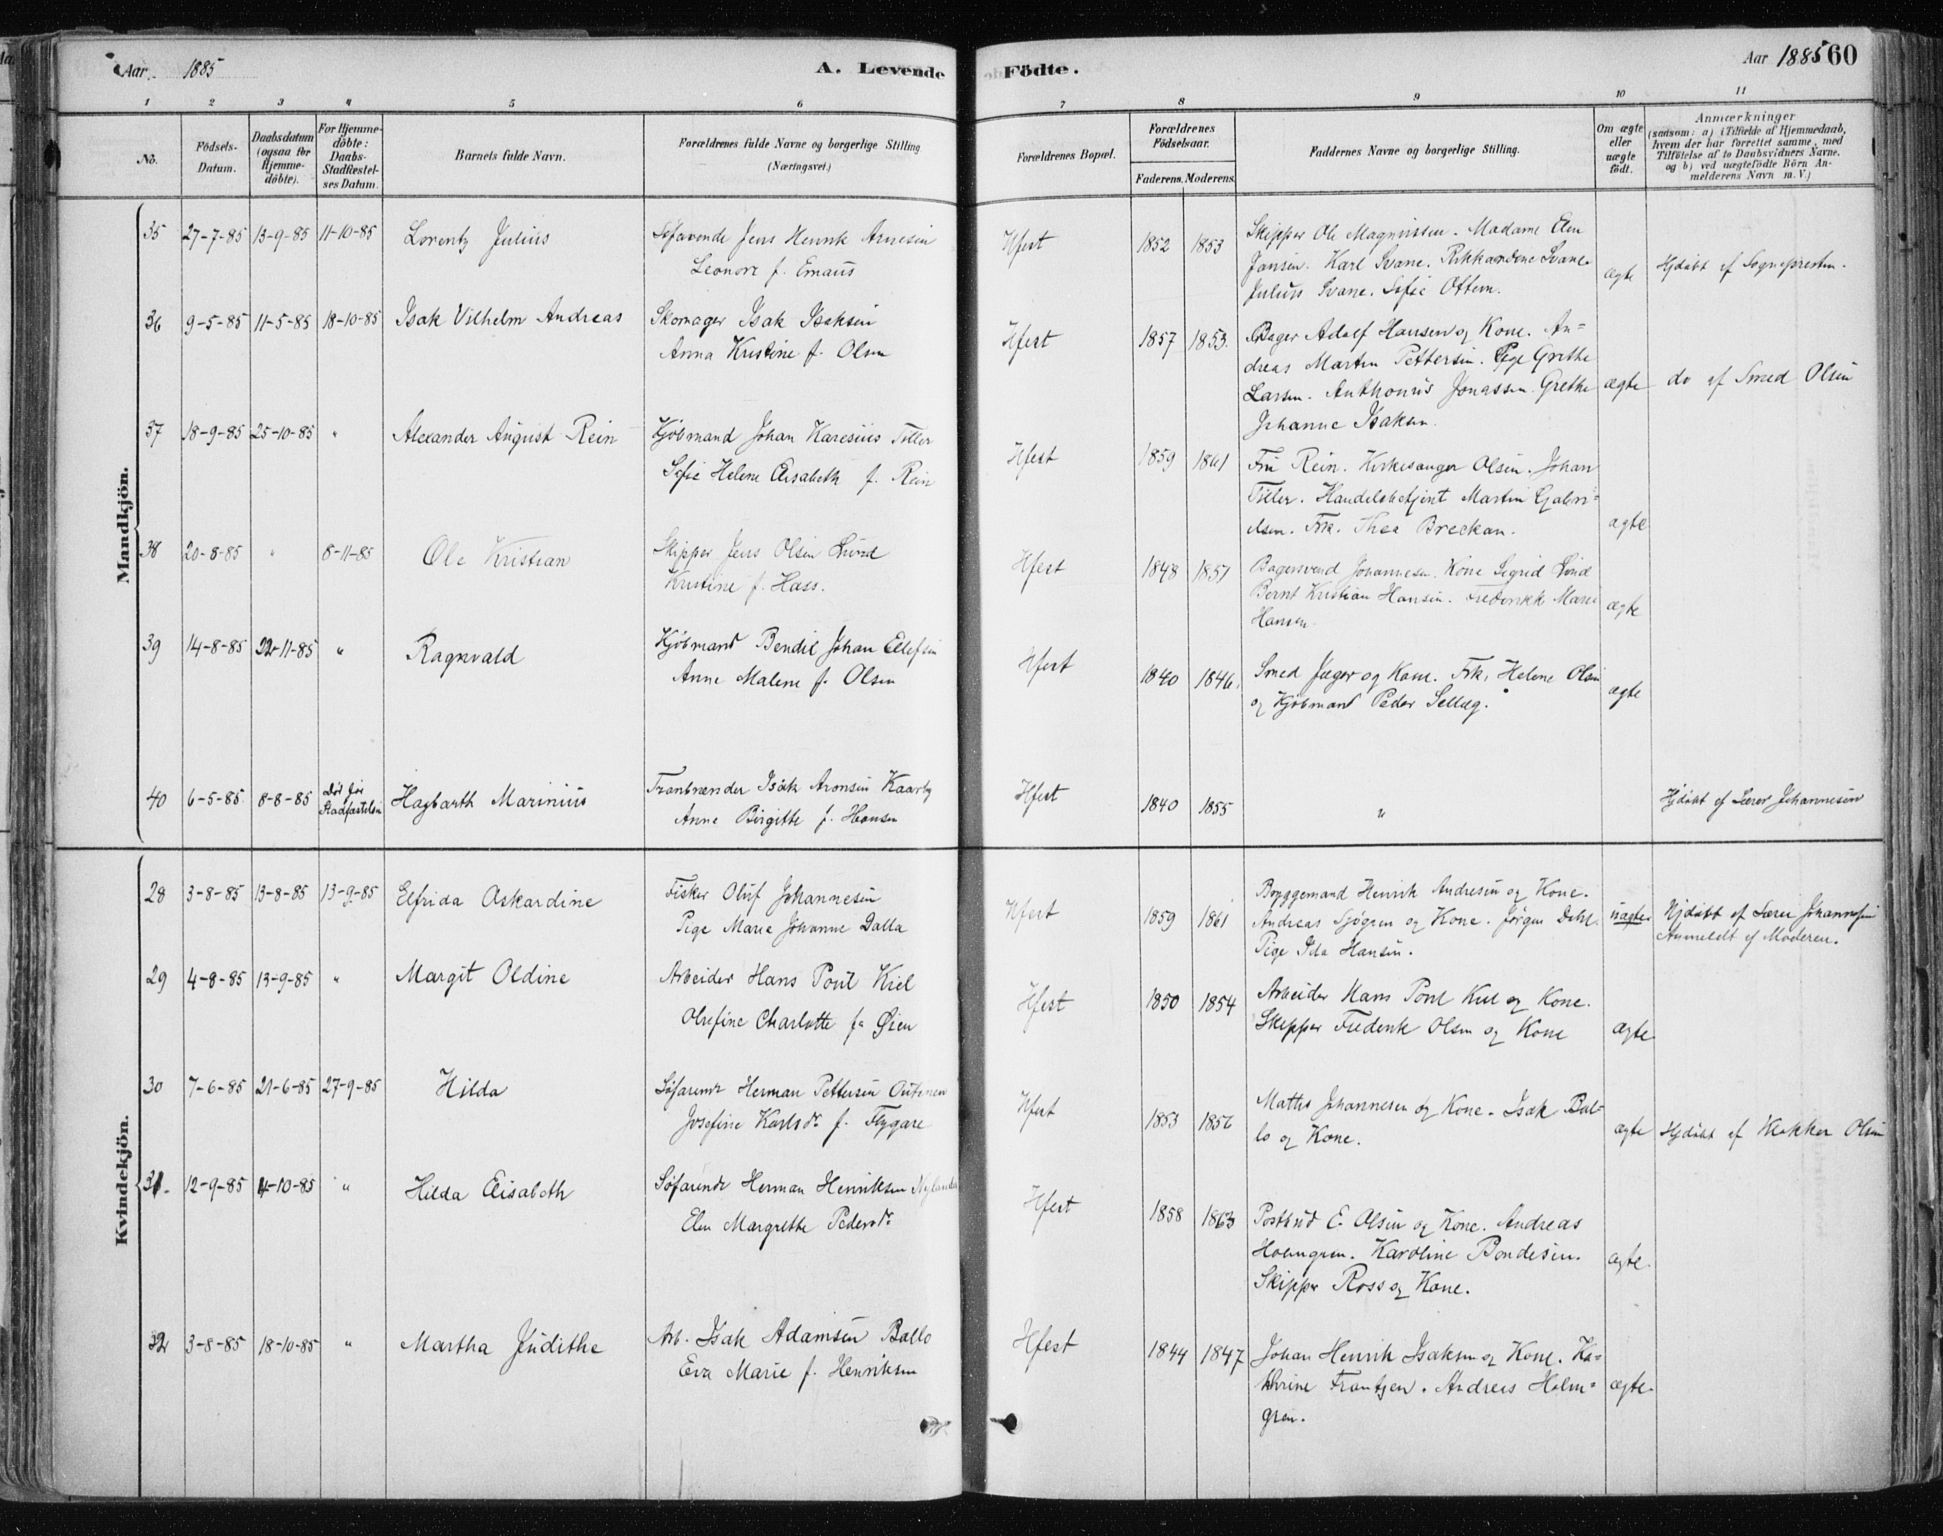 Aar. 1885
A. Levende Födte.
Aar 1885 60
1 2 3 4 5 6 7 8 9 10 11
No.
Födsels-Datum.
Daabsdatum (ogsaa for Hjemme-döbte).
For Hjemme-döbte: Daabs-Stadfæstel-ses Datum.
Barnets fulde Navn.
Forældrenes fulde Navne og borgerlige Stilling (Næringsvei.)
Forældrenes Bopæl.
Forældrenes Födselsaar.
Faderens. Moderens.
Faddernes Navne og borgerlige Stilling.
Om ægte eller uægte födt.
Anmærkninger
(saasom: a) i Tilfælde af Hjemmedaab,
hvem der har forrettet samme, med
Tilföielse af to Daabsvidners Navne,
og b) ved uægtefödte Börn An-
melderens Navn m. V.)
Mandkjön.
35 27-7-85 13-9-85 11-10-85 Lorentz Julius
Søfarende Jens Henrik Arnesen
Leonore f. Emaus
Hfest 1852 1853
Skipper Ole Magnussen. Madame Elen
Jansen. Karl Svane. Svane.
Julius Svane. Sofie Ottem.
ægte Hjdøbt af Sognepresten.
36 9-5-85 11-5-85 18-10-85 Isak Vilhelm Andreas
Skomager Isak Isaksen
Anna Kristine f. Olsen
Hfest 1857 1853.
Bager Adolf Hansen og Kone. An=
dreas Martin Pettersen. Pige Grethe
Larsen. Anthonius Jonassen. Grethe
Johanne Isaksen.
ægte do af Smed Olsen
37 18-9-85 25-10-85 " Alexander August Rein
Kjøbmand Johan Karesius Tiller
Sofie Helene Elisabeth f. Rein
Hfest 1859 1861
Fru Rein. Kirkesanger Olsen. Johan
Tiller. Handelsbetjent Martin Gabri=
elsen. Frk. Thea Breckan.
ægte
38 20-8-85 " 8-11-85 Ole Kristian
Skipper Jens Olsen Lund
Kristine f. Hass.
Hfest 1848 1851
Bagersvend Johannesen. Kone Sigrid Lund
Bernt Kristian Hansen. Frederikke Marie
Hansen.
ægte
39 14-8-85 22-11-85 " Ragnvald
Kjøbmand Bendik Johan Ellefsen
Anne Malene f. Olsen
Hfest 1840 1846.
Smed Jæger og Kone. Frk. Helene Olsen
og Kjøbmand Peder Sellæg.
ægte
40 6-5-85 8-8-85 Død før Stadfæstelsen Hagbarth Marinius
Tranbrænder Isak Aronsen Kaarby
Anne Birgitte f. Hansen
Hfest 1840 1855 "
Hjdøbt af Lærer Johannesen
Kvindekjön.
28 3-8-85 13-8-85 13-9-85 Elfrida Oskardine
Fisker Oluf Johannesen
Pige Marie Johanne Dalla
Hfest 1859 1861
Bryggemand Henrik Andresen og Kone.
Andreas Sjøgren og Kone. Jørgen Dahl.
Pige Ida Hansen.
uægte Hjdøbt af Lærer Johannesen
Anmeldt af Moderen.
29 4-8-85 13-9-85 " Margit Oldine
Arbeider Hans Poul Kiel
Olufine Charlotte f. Øien
Hfest 1850 1854
Arbeider Hans Poul Kiel og Kone.
Skipper Frederik Olsen og Kone
ægte
30 7-6-85 21-6-85 27-9-85 Hilda
Søfarende Herman Pettersen
Josefine Karlsdr f. Flygare
Hfest 1853 1856
Mathis Johannesen og Kone. Isak Bal=
lo og Kone.
ægte Hjdøbt af Klokker Olsen
31. 12-9-85 4-10-85 " Hilda Elisabeth
Søfarende Herman Henriksen Nylander
Elen Margrethe Pedersdr
Hfest 1858 1863
Postbud E. Olsen og Kone. Andreas
Holmgren. Karoline Bendesen.
Skipper Ross og Kone.
ægte
32 3-8-85 18-10-85 " Martha Judithe
Arb. Isak Adamsen Ballo
Eva Marie f. Henriksen
Hfest 1844 1847
Johan Henrik Isaksen og Kone. Ka=
thrine Frantzen. Andreas Holm=
gren.
ægte